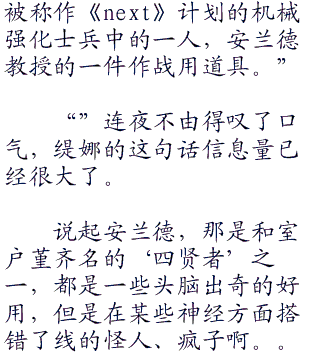 被称作《next》计划的机械
强化士兵中的一人，安兰德
教授的一件作战用道具。”
“”连夜不由得叹了口
气，缇娜的这句话信息量已
经很大了。
说起安兰德，那是和室
户堇齐名的‘四贤者’之
一，都是一些头脑出奇的好
用，但是在某些神经方面搭
错了线的怪人、疯子啊。。